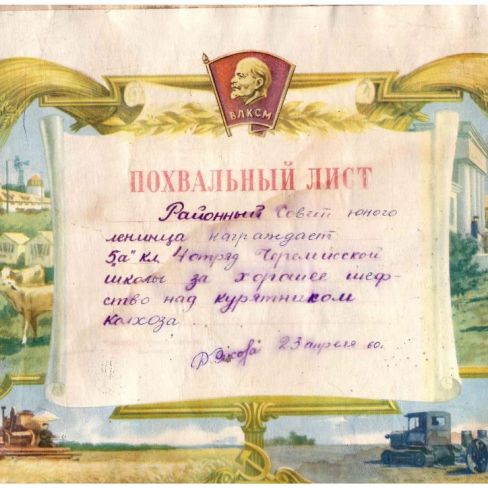 ВЛКСМ
ПОХВАЛЬНЫЙ ЛИСТ
Районный Совет юного
ленинца награждает
5"а" кл 4 отряд Черемисской
школы за хорошее шеф-
ство над курятником
колхоза
23 апреля 60.